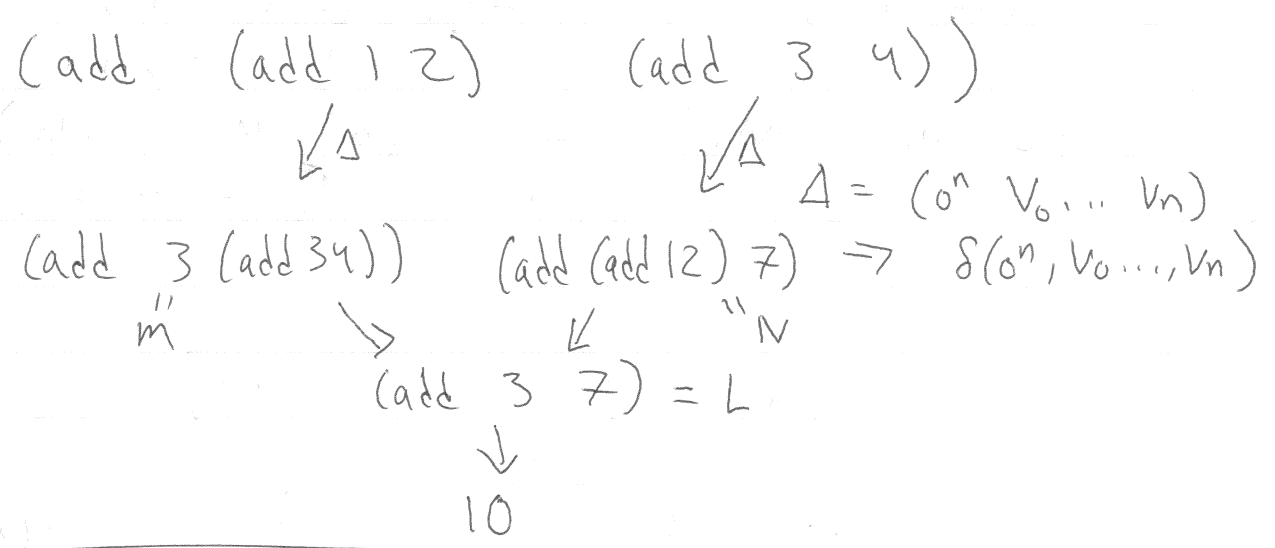 (add (add 1 2) (add 3 4))
↙ Δ ↙ Δ
Δ = (oⁿ V₀ ... Vn)
(add 3 (add 3 4)) (add (add 1 2) 7) → δ(oⁿ, V₀ ..., Vn)
" M " N
↘ ↙
(add 3 7) = L
↓
10